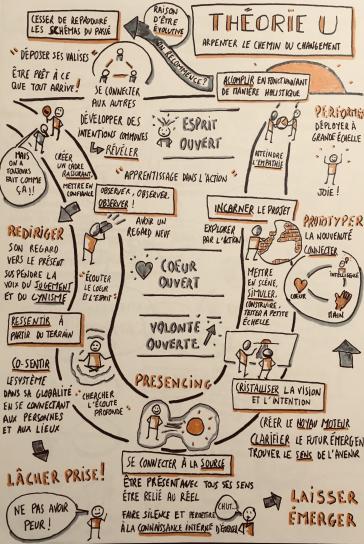 CESSER DE REPRODUIRE
LES SCHÉMAS DU PASSÉ
RAISON
D'ÊTRE
ÉVOLUTIVE
ON RECOMMENCE ?
THÉORIE U
ARPENTER LE CHEMIN DU CHANGEMENT
"DÉPOSER SES VALISES"
ÊTRE PRÊT À CE
QUE TOUT ARRIVE !
SE CONNECTER
AUX AUTRES
DÉVELOPPER DES
INTENTIONS COMMUNES
RÉVÉLER
ESPRIT
OUVERT
ACCOMPLIR EN FONCTIONNANT
DE MANIÈRE HOLISTIQUE
PERFORMER
DÉPLOYER À
GRANDE ÉCHELLE
JOIE !
ATTEINDRE
L'EMPATHIE
MAIS
ON A
TOUJOURS
FAIT COMME
ÇA !!
CRÉER
UN CADRE
RASSURANT
METTRE EN
CONFIANCE
"APPRENTISSAGE DANS L'ACTION"
OBSERVER, OBSERVER,
OBSERVER !
AVOIR UN
REGARD NEUF
INCARNER LE PROJET
EXPLORER
PAR L'ACTION
PROTOTYPER
LA NOUVEAUTÉ
CONNECTER
INTELLIGENCE
COEUR
MAIN
REDIRIGER
SON REGARD
VERS LE PRÉSENT
SUSPENDRE LA
VOIX DU JUGEMENT
ET DU CYNISME
"ÉCOUTER
LE COEUR
ET L'ESPRIT"
COEUR
OUVERT
METTRE
EN SCÈNE,
SIMULER,
CONSTRUIRE,
TESTER À PETITE
ÉCHELLE
RESSENTIR À
PARTIR DU TERRAIN
VOLONTÉ
OUVERTE
CO-SENTIR
LE SYSTÈME
DANS SA GLOBALITÉ
EN SE CONNECTANT
AUX PERSONNES
ET AUX LIEUX
"CHERCHER
L'ÉCOUTE
PROFONDE"
PRESENCING
CRISTALLISER LA VISION
ET L'INTENTION
CRÉER LE NOYAU MOTEUR
CLARIFIER LE FUTUR ÉMERGEN
TROUVER LE SENS DE L'AVENIR
LÂCHER PRISE !
NE PAS AVOIR
PEUR !
SE CONNECTER À LA SOURCE
ÊTRE PRÉSENT AVEC TOUS SES SENS
ÊTRE RELIÉ AU RÉEL
FAIRE SILENCE ET PERMETTRE
À LA CONNAISSANCE INTERNE D'ÉMERGER
CHUT...
LAISSER
ÉMERGER